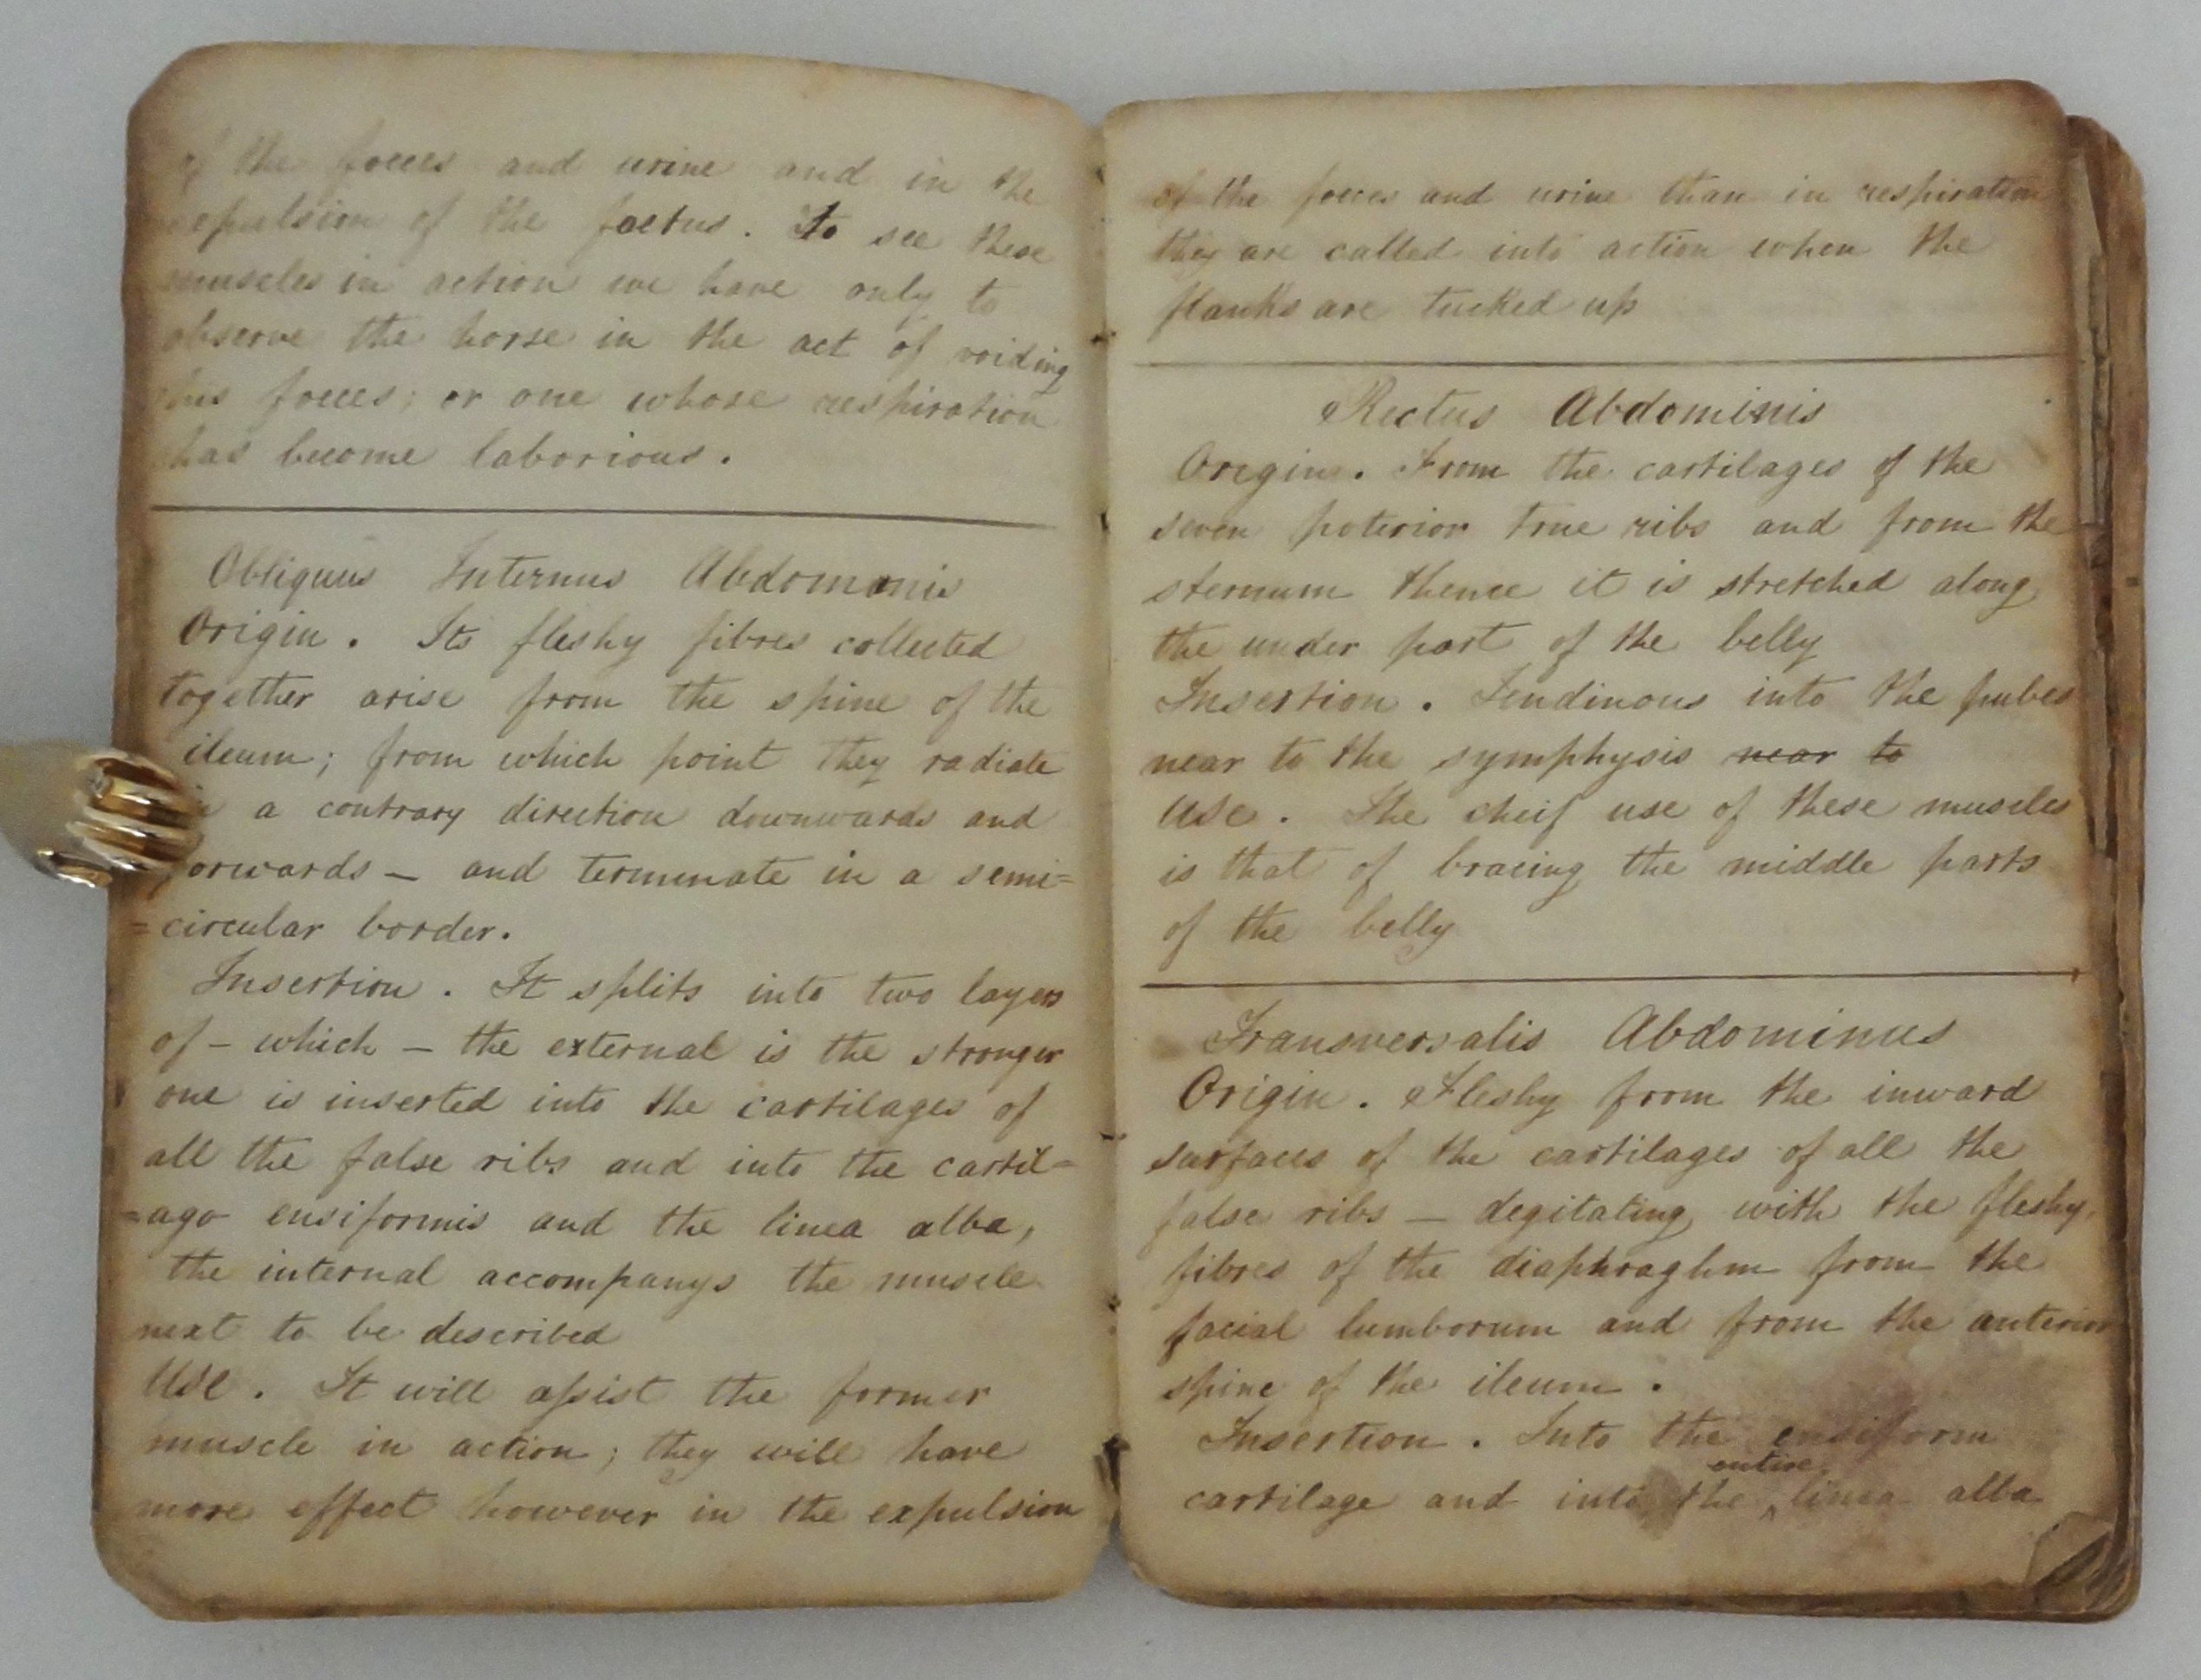 of the foeces and urine and in the
repulsion of the foetus. To see these
muscles in action we have only to
observe the horse in the act of voiding
his foeces; or one whose respiration
has become laborious.
Obliquus Internus Abdomonis
Origin. Its fleshy fibres collected
together arise from the spine of the
ileum; from which point they radiate
in a contrary direction downwards and
forwards — and terminate in a semi=
=circular border.
Insertion. It splits into two layers
of — which — the external is the stronger
one is inserted into the cartilages of
all the false ribs and into the cartil=
=ago ensiformis and the linea alba,
the internal accompanys the muscle
next to be described
Use. It will assist the former
muscle in action; they will have
more effect however in the expulsion
of the foeces and urine than in respiration
they are called into action when the
flanks are tucked up
Rectus Abdominis
Origin. From the cartilages of the
seven poterior true ribs and from the
sternum thence it is stretched along
the under part of the belly
Insertion. Tendinous into the pubes
near to the symphysis near to
Use. The cheif use of these muscles
is that of bracing the middle parts
of the belly
Transversalis Abdominus
Origin. Fleshy from the inward
surfaces of the cartilages of all the
false ribs — degitating with the fleshy
fibres of the diaphraghm from the
facial lumborum and from the anterior
spine of the ileum.
Insertion. Into the ensiform
cartilage and into the entire linea alba